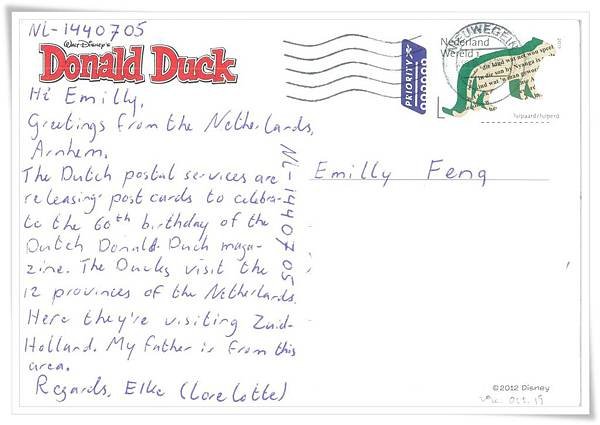 NL-1440705
WALT DISNEY'S
Donald Duck
Hi Emilly,
Greetings from the Netherlands,
Arnhem.
The Dutch postal services are
releasing post cards to celebra-
te the 60th birthday of the
Dutch Donald Duck maga-
zine. The Ducks visit the
12 provinces of the Netherlands.
Here they're visiting Zuid-
Holland. My father is from this
area.
Regards, Elke (Lorelotte)
NL-1440705
PRIORITY
NIEUWEGEIN
Nederland
Wereld 1
die kind wat net wou speel
in die son by Nyanga is
kind wat 'n man geword
luipaard/luiperd
Emilly Feng
©2012 Disney
Oct. 19